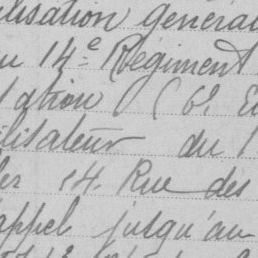 ilisation généra
u 14e Régiment
tation (6. E
ilisateur du
14 Rue des
appel jusqu'au